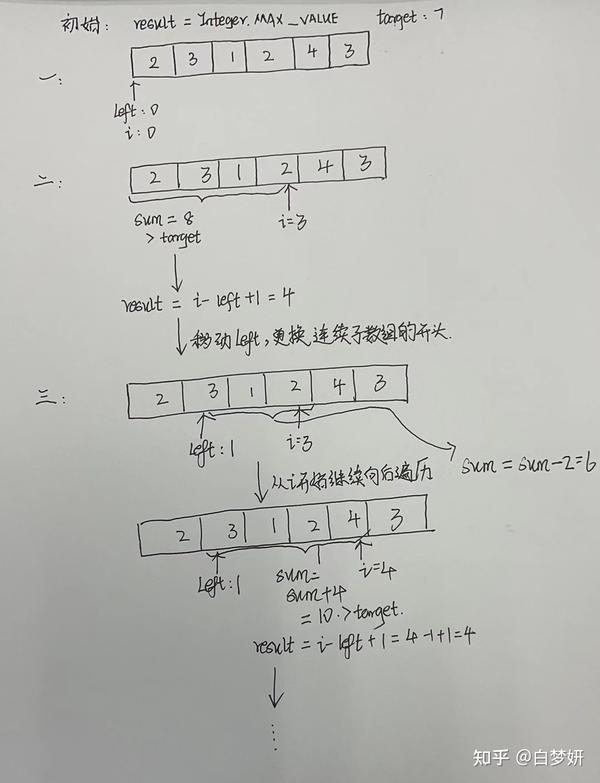 初始: result = Integer.MAX_VALUE target: 7
一:
2 3 1 2 4 3
left:0
i:0
二:
2 3 1 2 4 3
sum = 8
> target
i=3
result = i-left+1 = 4
移动left,更换连续子数组的开头.
三:
2 3 1 2 4 3
left:1
i=3
sum = sum-2=6
从i开始继续向后遍历
2 3 1 2 4 3
left:1
sum=
sum+4
=10.>target.
i=4
result = i-left+1=4-1+1=4
知乎 @白梦妍